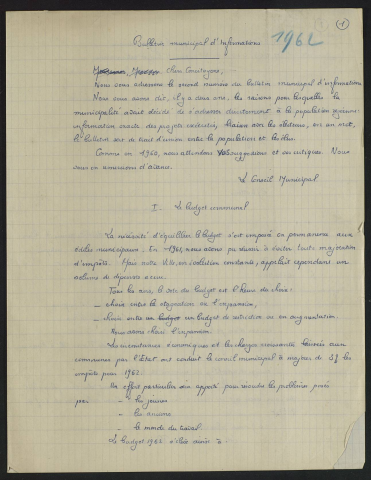 1
Bulletin municipal d'Informations
1962
Chers Concitoyens,
Nous vous adressons le second numéro du bulletin municipal d'informations
Nous vous avons dit, il y a deux ans, les raisons pour lesquelles la
municipalité avait décidé de s'adresser directement à la population
information exacte des projets exécutés, liaison avec les électeurs, en un mot,
le bulletin sert de trait d'union entre la population et les élus.
Comme en 1960, nous attendons vos suggestions et vos critiques. Nous
vous en remercions d'avance.
Le Conseil Municipal
I - Le budget communal
La nécessité d'équilibrer le budget s'est imposée en permanence aux
édiles municipaux. En 1961, nous avons pu réussir à éviter toute majoration
d'impôts. Mais notre Ville, en évolution constante, appelait cependant un
volume de dépenses accru.
Tous les ans, le vote du budget est l'heure du choix :
- choix entre la stagnation et l'expansion,
- choix entre un budget un budget de restriction ou en augmentation.
Nous avons choisi l'expansion.
Les circonstances économiques et les charges croissantes laissées aux
communes par l'Etat ont conduit le conseil municipal à majorer de les
impôts pour 1962.
Un effort particulier est apporté pour résoudre les problèmes posés
par - les jeunes
- les anciens
- le monde du travail.
Le budget 1962 s'élève ainsi à :